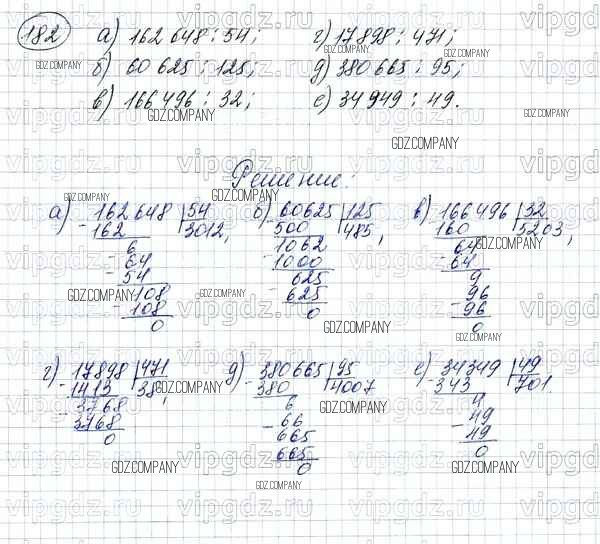 182 а) 162 648 : 54; г) 17 898 : 471;
б) 60 625 : 125; д) 380 665 : 95;
в) 166 496 : 32; е) 34 949 : 49.
Решение:
а) 162648 | 54
- 162 3012,
6
- 64
54
108
- 108
0
б) 60625 | 125
- 500 485,
1062
- 1000
625
- 625
0
в) 166496 | 32
- 160 5203,
64
- 64
9
96
- 96
0
г) 17898 | 471
- 1413 38,
3768
- 3768
0
д) 380665 | 95
- 380 4007
6
- 66
665
665
0
е) 34349 | 49
- 343 701
4
- 49
49
0
vipgdz.ru
GDZ.COMPANY